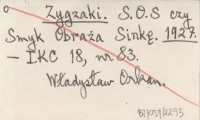 Zygzaki. S.O.S czy
Smyk Obraża Sinkę. 1927.
– IKC 18, nr 83.
Władysław Orkan.